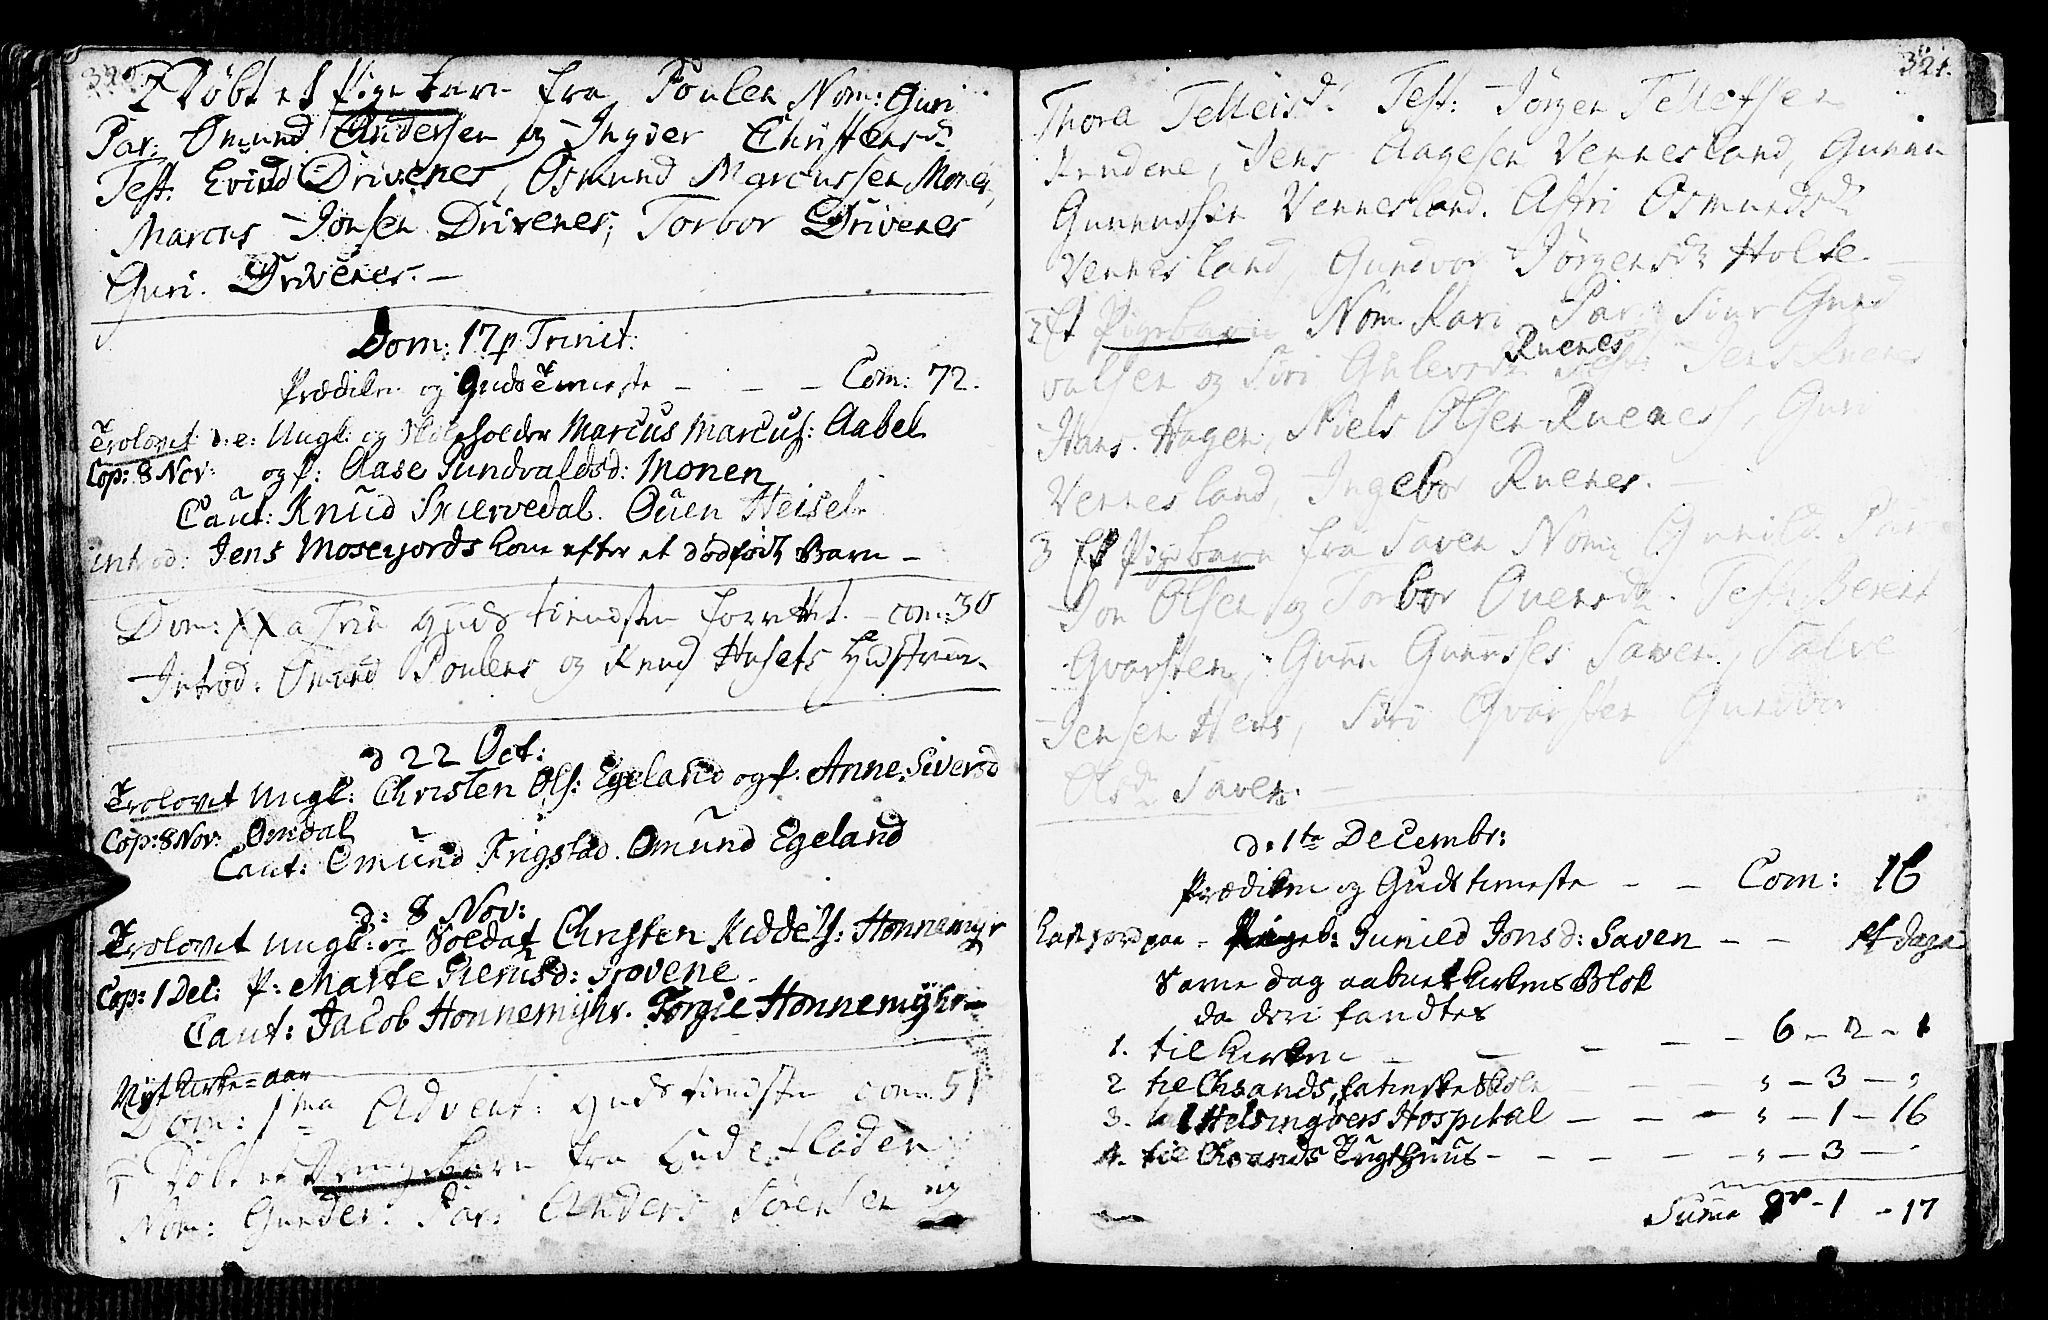 320.
2 Døbt et Pige barn fra Poulen Nom: Guri
Par: Omund Andersen og Ingver Christensdr
Test: Evind Drivenes, Osmund Marcussen Monen,
Marcus Jonsen Drivenes, Torbor Drivenes
Guri Drivenes. —
Dom: 17 p Trinit:
Prædiken og Gudstieneste — — — Com: 72.
Trolovet d. e: Ungk: og Marcus Marcus: Aabel
Cop: 8 Nov: og p: Aase Gundvaldsd: Monen
Caut: Knud Skiervedal. Ouen Heisel
introd: Jens Mosejords kone efter et dødfødt Barn —
Dom: XX a Trin gudstienesten forrettet. — com: 30
Introd: Omund Poulens og Knud Husets Hustruer.
d 22 Oct:
Trolovet Ungk: Christen Ols: Egeland og p: Anne Siversd
Cop: 8 Nov: Omdal
Caut: Omund Frigstad. Omund Egeland
d: 8 Nov:
Trolovet Ungk: og Soldat Christen Kiddels: Honnemyr
Cop: 1 Dec: P: Marte
Caut: Jacob Honnemyhr. Torgie Honnemyhr
Nyt Kirke=aar
Dom: 1ma Advent: gudstienesten com: 51
1 Døbt et Drengebarn fra
Nom: Gunder. Par: Anders Sørensen og
321.
Thora Tellefsdr Test: Jörgen Tellefsen
Jens Aagesen Vennesland, Gunnu
Gunnussen Vennesland. Astri Osmundsdr
Vennesland, Gundvor Jörgensdr Holte. —
2 Et Pigebarn Nom: Kari Par: Siur Gund
valsen og Siri Gulevsdr Ruenes Test: Jens Ruenes
Hans Hagen, Niels Olsen Ruenes, Guri
Vennesland, Ingebor Ruenes. —
3 Et Pigebarn fra Saven Nom: Gunild. Par:
Jon Olsen og Torbor Ouensdr. Test: Berent
Qvarsten, Gunn Saven, Salve
Jensen Hens, Siri Qvarsten Gundvor
Olsdr Saven. —
d: 1te Decembr:
Prædiken og Gudstieneste — — Com: 16
Kast Jord paa = Pigeb: Gunild Jonsd: Saven — — Dage
Same dag aabnet kirkens Blok
da deri fandtes
1. til kirken — — — — — 6 — 2 — 1
2 til Chsands latinske Skole — — — " — 3 — "
3. til Helsingöers Hospital — — — " — 1 — 16
4. til Chsands Tugthuus — — — — " — 3 — "
Suma 1 — 17